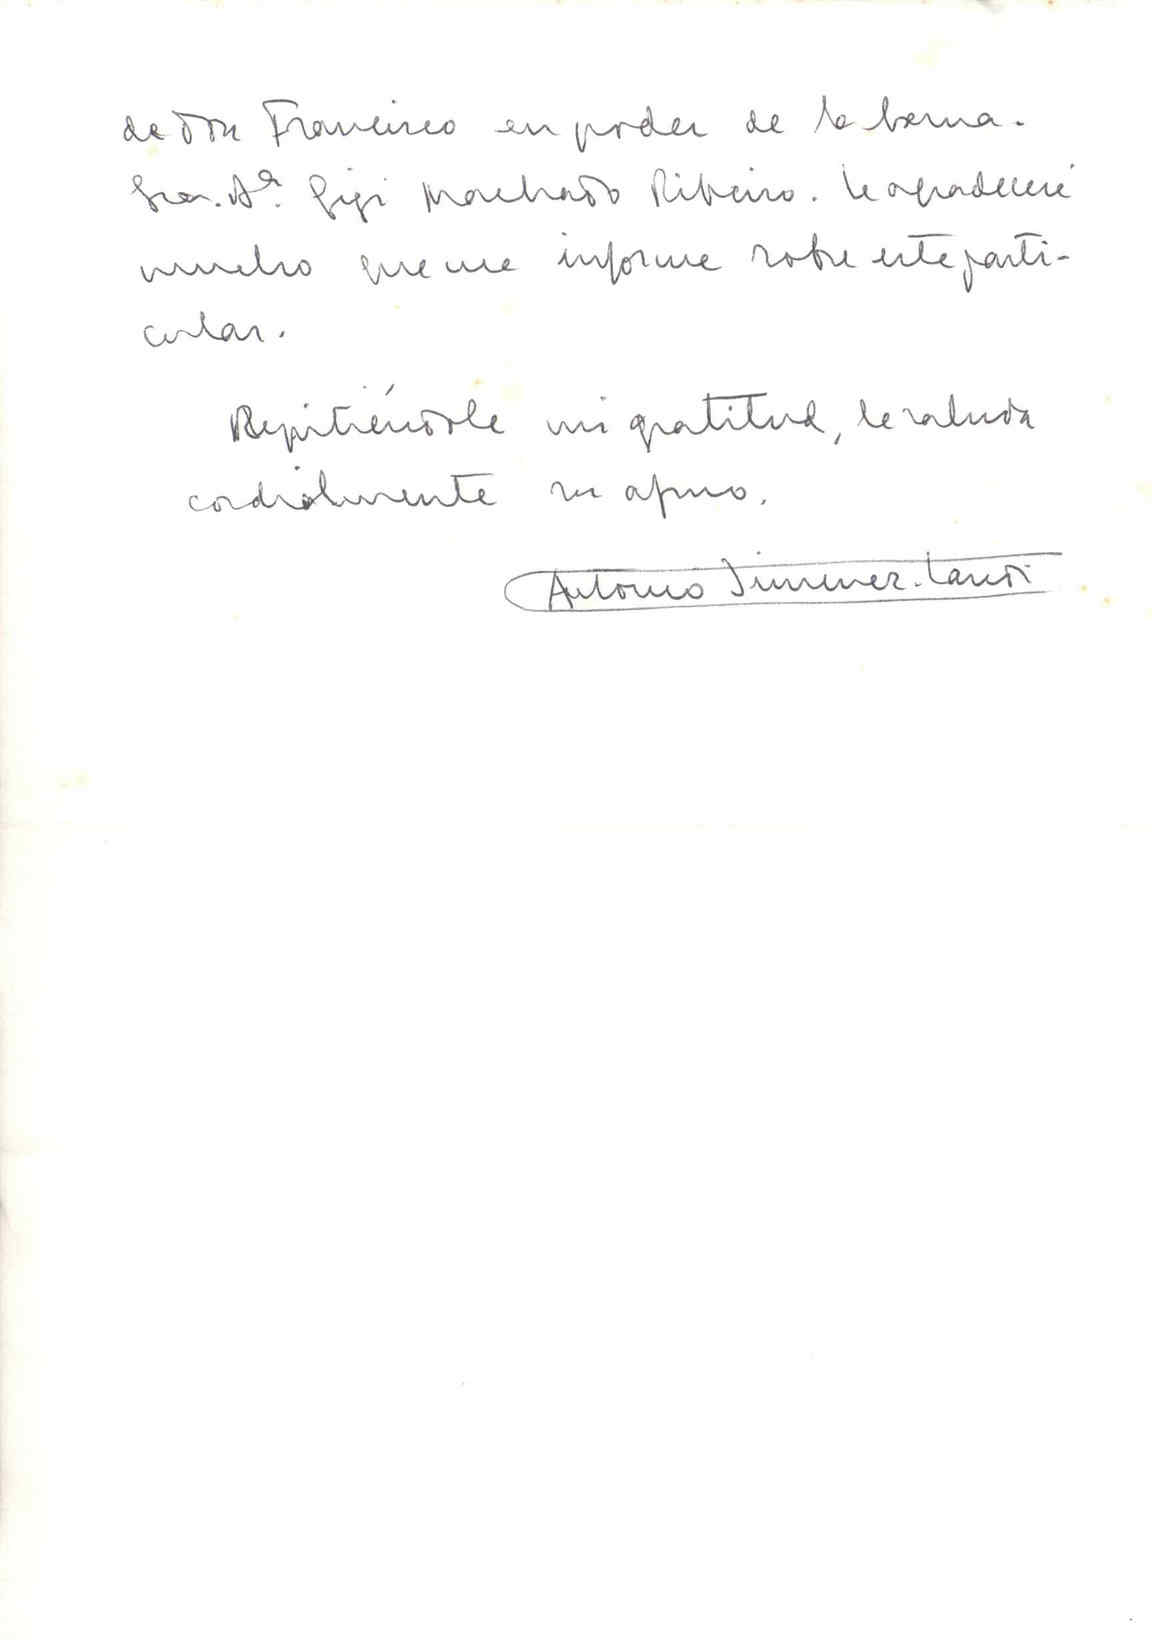 de Don Francisco en poder de la Exma.
Sra. Dª. Gigi Machado Ribeiro. Le agradeceré
mucho que me informe sobre este parti-
cular.
Repitiéndole mi gratitud, le saluda
cordialmente su afmo.
Antonio Jiménez-Landi